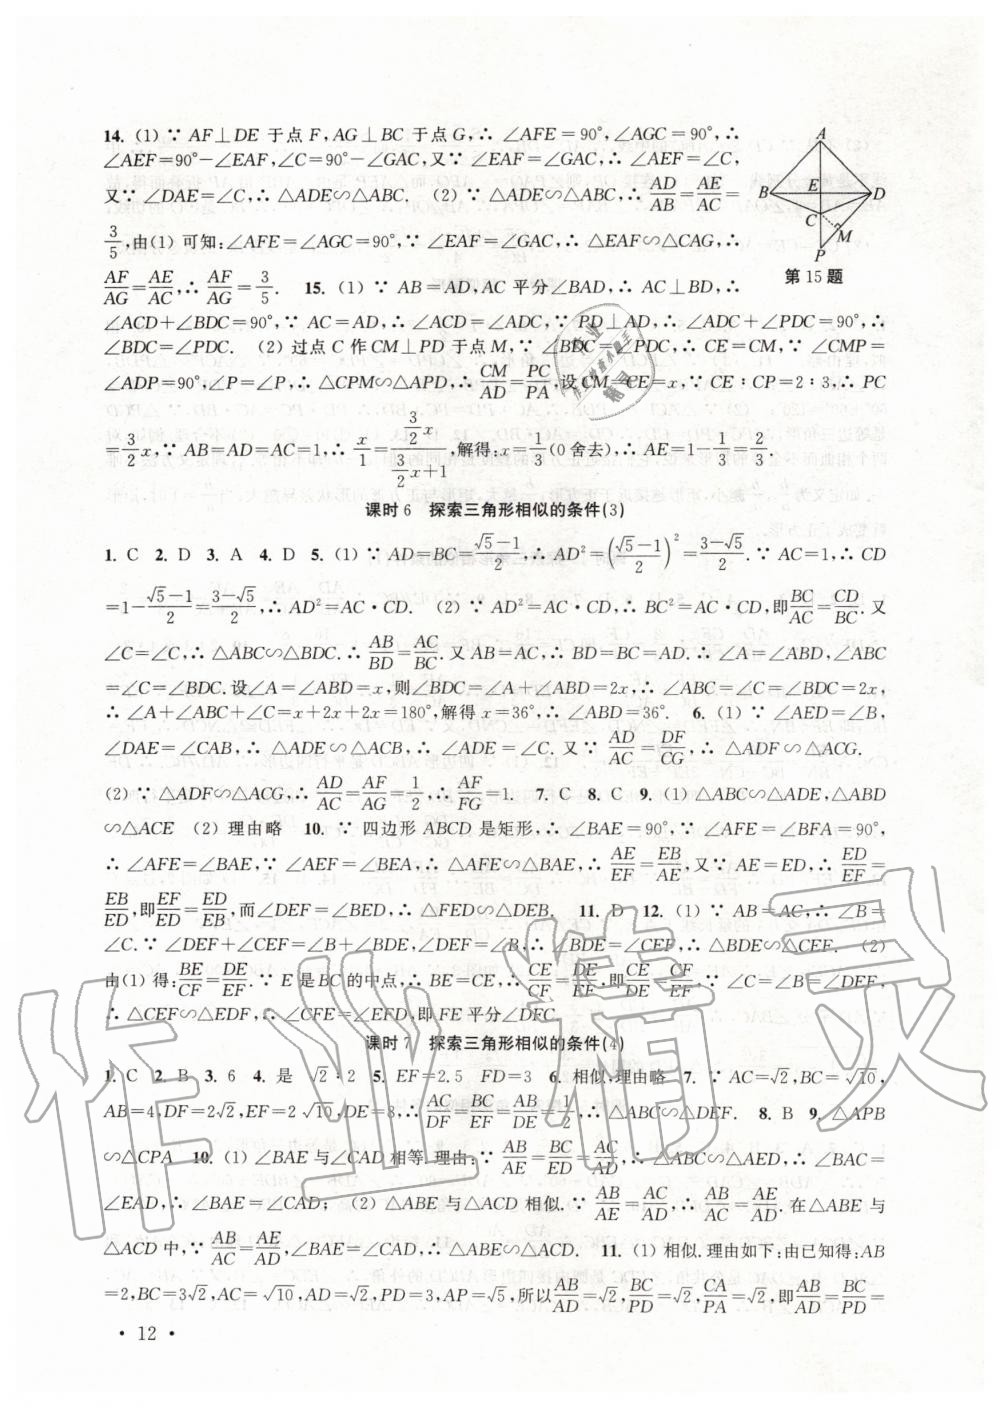 14. (1) ∵ AF⊥DE 于点 F,AG⊥BC 于点 G,∴ ∠AFE=90°,∠AGC=90°,∴
∠AEF=90°-∠EAF,∠C=90°-∠GAC,又∵ ∠EAF=∠GAC,∴ ∠AEF=∠C,
又∵ ∠DAE=∠C,∴ △ADE∽△ABC. (2) ∵ △ADE∽△ABC,∴ AD/AB=AE/AC=
3/5,由(1) 可知:∠AFE=∠AGC=90°,∵ ∠EAF=∠GAC,∴ △EAF∽△CAG,∴
AF/AG=AE/AC,∴ AF/AG=3/5. 15. (1) ∵ AB=AD,AC 平分∠BAD,∴ AC⊥BD,∴
A
B
E
D
C
M
P
第 15 题
∠ACD+∠BDC=90°,∵ AC=AD,∴ ∠ACD=∠ADC,∵ PD⊥AD,∴ ∠ADC+∠PDC=90°,∴
∠BDC=∠PDC. (2) 过点 C 作 CM⊥PD 于点 M,∵ ∠BDC=∠PDC,∴ CE=CM,∵ ∠CMP=
∠ADP=90°,∠P=∠P,∴ △CPM∽△APD,∴ CM/AD=PC/PA,设 CM=CE=x,∵ CE∶CP=2∶3,∴ PC
=3/2x,∵ AB=AD=AC=1,∴ x/1=(3/2x)/(3/2x+1),解得:x=1/3(0 舍去),∴ AE=1-1/3=2/3.
课时 6 探索三角形相似的条件(3)
1. C 2. D 3. A 4. D 5. (1) ∵ AD=BC=(√5-1)/2,∴ AD²=((√5-1)/2)²=(3-√5)/2. ∵ AC=1,∴ CD
=1-(√5-1)/2=(3-√5)/2,∴ AD²=AC·CD. (2) ∵ AD²=AC·CD,∴ BC²=AC·CD,即BC/AC=CD/BC. 又
∠C=∠C,∴ △ABC∽△BDC. ∴ AB/BD=AC/BC. 又 AB=AC,∴ BD=BC=AD. ∴ ∠A=∠ABD,∠ABC
=∠C=∠BDC. 设∠A=∠ABD=x,则∠BDC=∠A+∠ABD=2x,∴ ∠ABC=∠C=∠BDC=2x,
∴ ∠A+∠ABC+∠C=x+2x+2x=180°,解得 x=36°,∴ ∠ABD=36°. 6. (1) ∵ ∠AED=∠B,
∠DAE=∠CAB,∴ △ADE∽△ACB,∴ ∠ADE=∠C. 又∵ AD/AC=DF/CG,∴ △ADF∽△ACG.
(2) ∵ △ADF∽△ACG,∴ AD/AC=AF/AG=1/2,∴ AF/FG=1. 7. C 8. C 9. (1) △ABC∽△ADE,△ABD
∽△ACE (2) 理由略 10. ∵ 四边形 ABCD 是矩形,∴ ∠BAE=90°,∵ ∠AFE=∠BFA=90°,
∴ ∠AFE=∠BAE,∵ ∠AEF=∠BEA,∴ △AFE∽△BAE,∴ AE/EF=EB/AE,又∵ AE=ED,∴ ED/EF=
EB/ED,即EF/ED=ED/EB,而∠DEF=∠BED,∴ △FED∽△DEB. 11. D 12. (1) ∵ AB=AC,∴ ∠B=
∠C. ∵ ∠DEF+∠CEF=∠B+∠BDE,∠DEF=∠B,∴ ∠BDE=∠CEF,∴ △BDE∽△CEF. (2)
由(1) 得:BE/CF=DE/EF. ∵ E 是 BC 的中点,∴ BE=CE,∴ CE/CF=DE/EF,即CE/DE=CF/EF. ∵ ∠C=∠B=∠DEF,
∴ △CEF∽△EDF,∴ ∠CFE=∠EFD,即 FE 平分∠DFC.
课时 7 探索三角形相似的条件(4)
1. C 2. B 3. 6 4. 是 √2∶2 5. EF=2.5 FD=3 6. 相似,理由略 7. ∵ AC=√2,BC=√10,
AB=4,DF=2√2,EF=2√10,DE=8,∴ AC/DF=BC/EF=AB/DE=1/2,∴ △ABC∽△DEF. 8. B 9. △APB
∽△CPA 10. (1) ∠BAE 与∠CAD 相等. 理由:∵ AB/AE=BC/ED=AC/AD,∴ △ABC∽△AED,∴ ∠BAC=
∠EAD,∴ ∠BAE=∠CAD; (2) △ABE 与△ACD 相似. ∵ AB/AE=AC/AD,∴ AB/AC=AE/AD. 在△ABE 与
△ACD 中,∵ AB/AC=AE/AD,∠BAE=∠CAD,∴ △ABE∽△ACD. 11. (1) 相似. 理由如下:由已知得:AB
=2,BC=3√2,AC=√10,AD=√2,PD=3,AP=√5,所以AB/AD=√2,BC/PD=√2,CA/PA=√2,即AB/AD=BC/PD=
· 12 ·
作业精灵